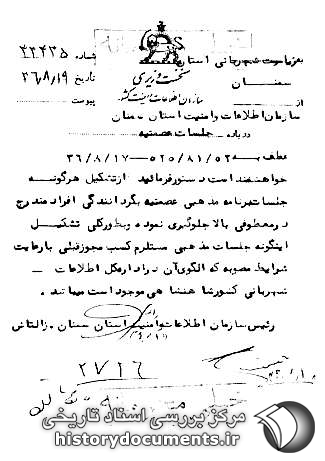 به ریاست شهربانی استان
سمنان
شماره ۲۲۴۳۵
نخست وزیری
تاریخ ۳۶/۸/۱۹
سازمان اطلاعات و امنیت کشور
از
پیوست
سازمان اطلاعات و امنیت استان سمنان
درباره جلسات عصمتیه
عطف به ۵۲۵/۸۱/۵۲ - ۳۶/۸/۱۷
خواهشمند است دستور فرمائید از تشکیل هرگونه
جلسات برنامه مذهبی عصمتیه بگردانندگی افراد مندرج
در معطوفی بالا جلوگیری نموده و بطور کلی تشکیل
اینگونه جلسات مذهبی مستلزم کسب مجوز قبلی با رعایت
شرایط مصوبه که الگوی آن در اداره کل اطلاعات -
شهربانی کشور شاهنشاهی موجود است میباشد.
رئیس سازمان اطلاعات و امنیت استان سمنان. زالتاش
۲۷۱۶
مرکز بررسی اسناد تاریخی
historydocuments.ir